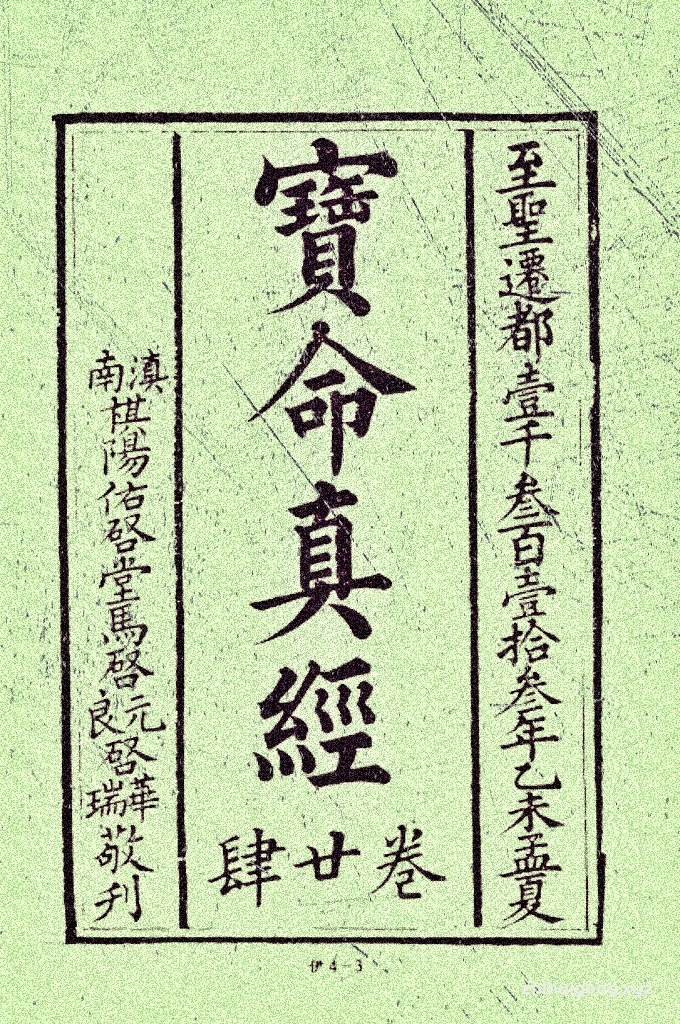 至聖遷都壹千叁百壹拾叁年乙未孟夏
寶命真經
卷廿肆
滇南棋陽佑啓堂馬啓元良啓華瑞敬刊
伊4-3